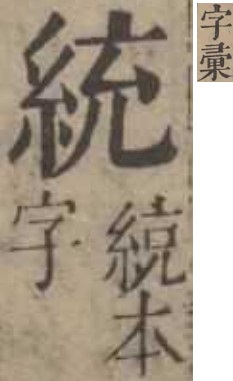 字彙
統
本
字